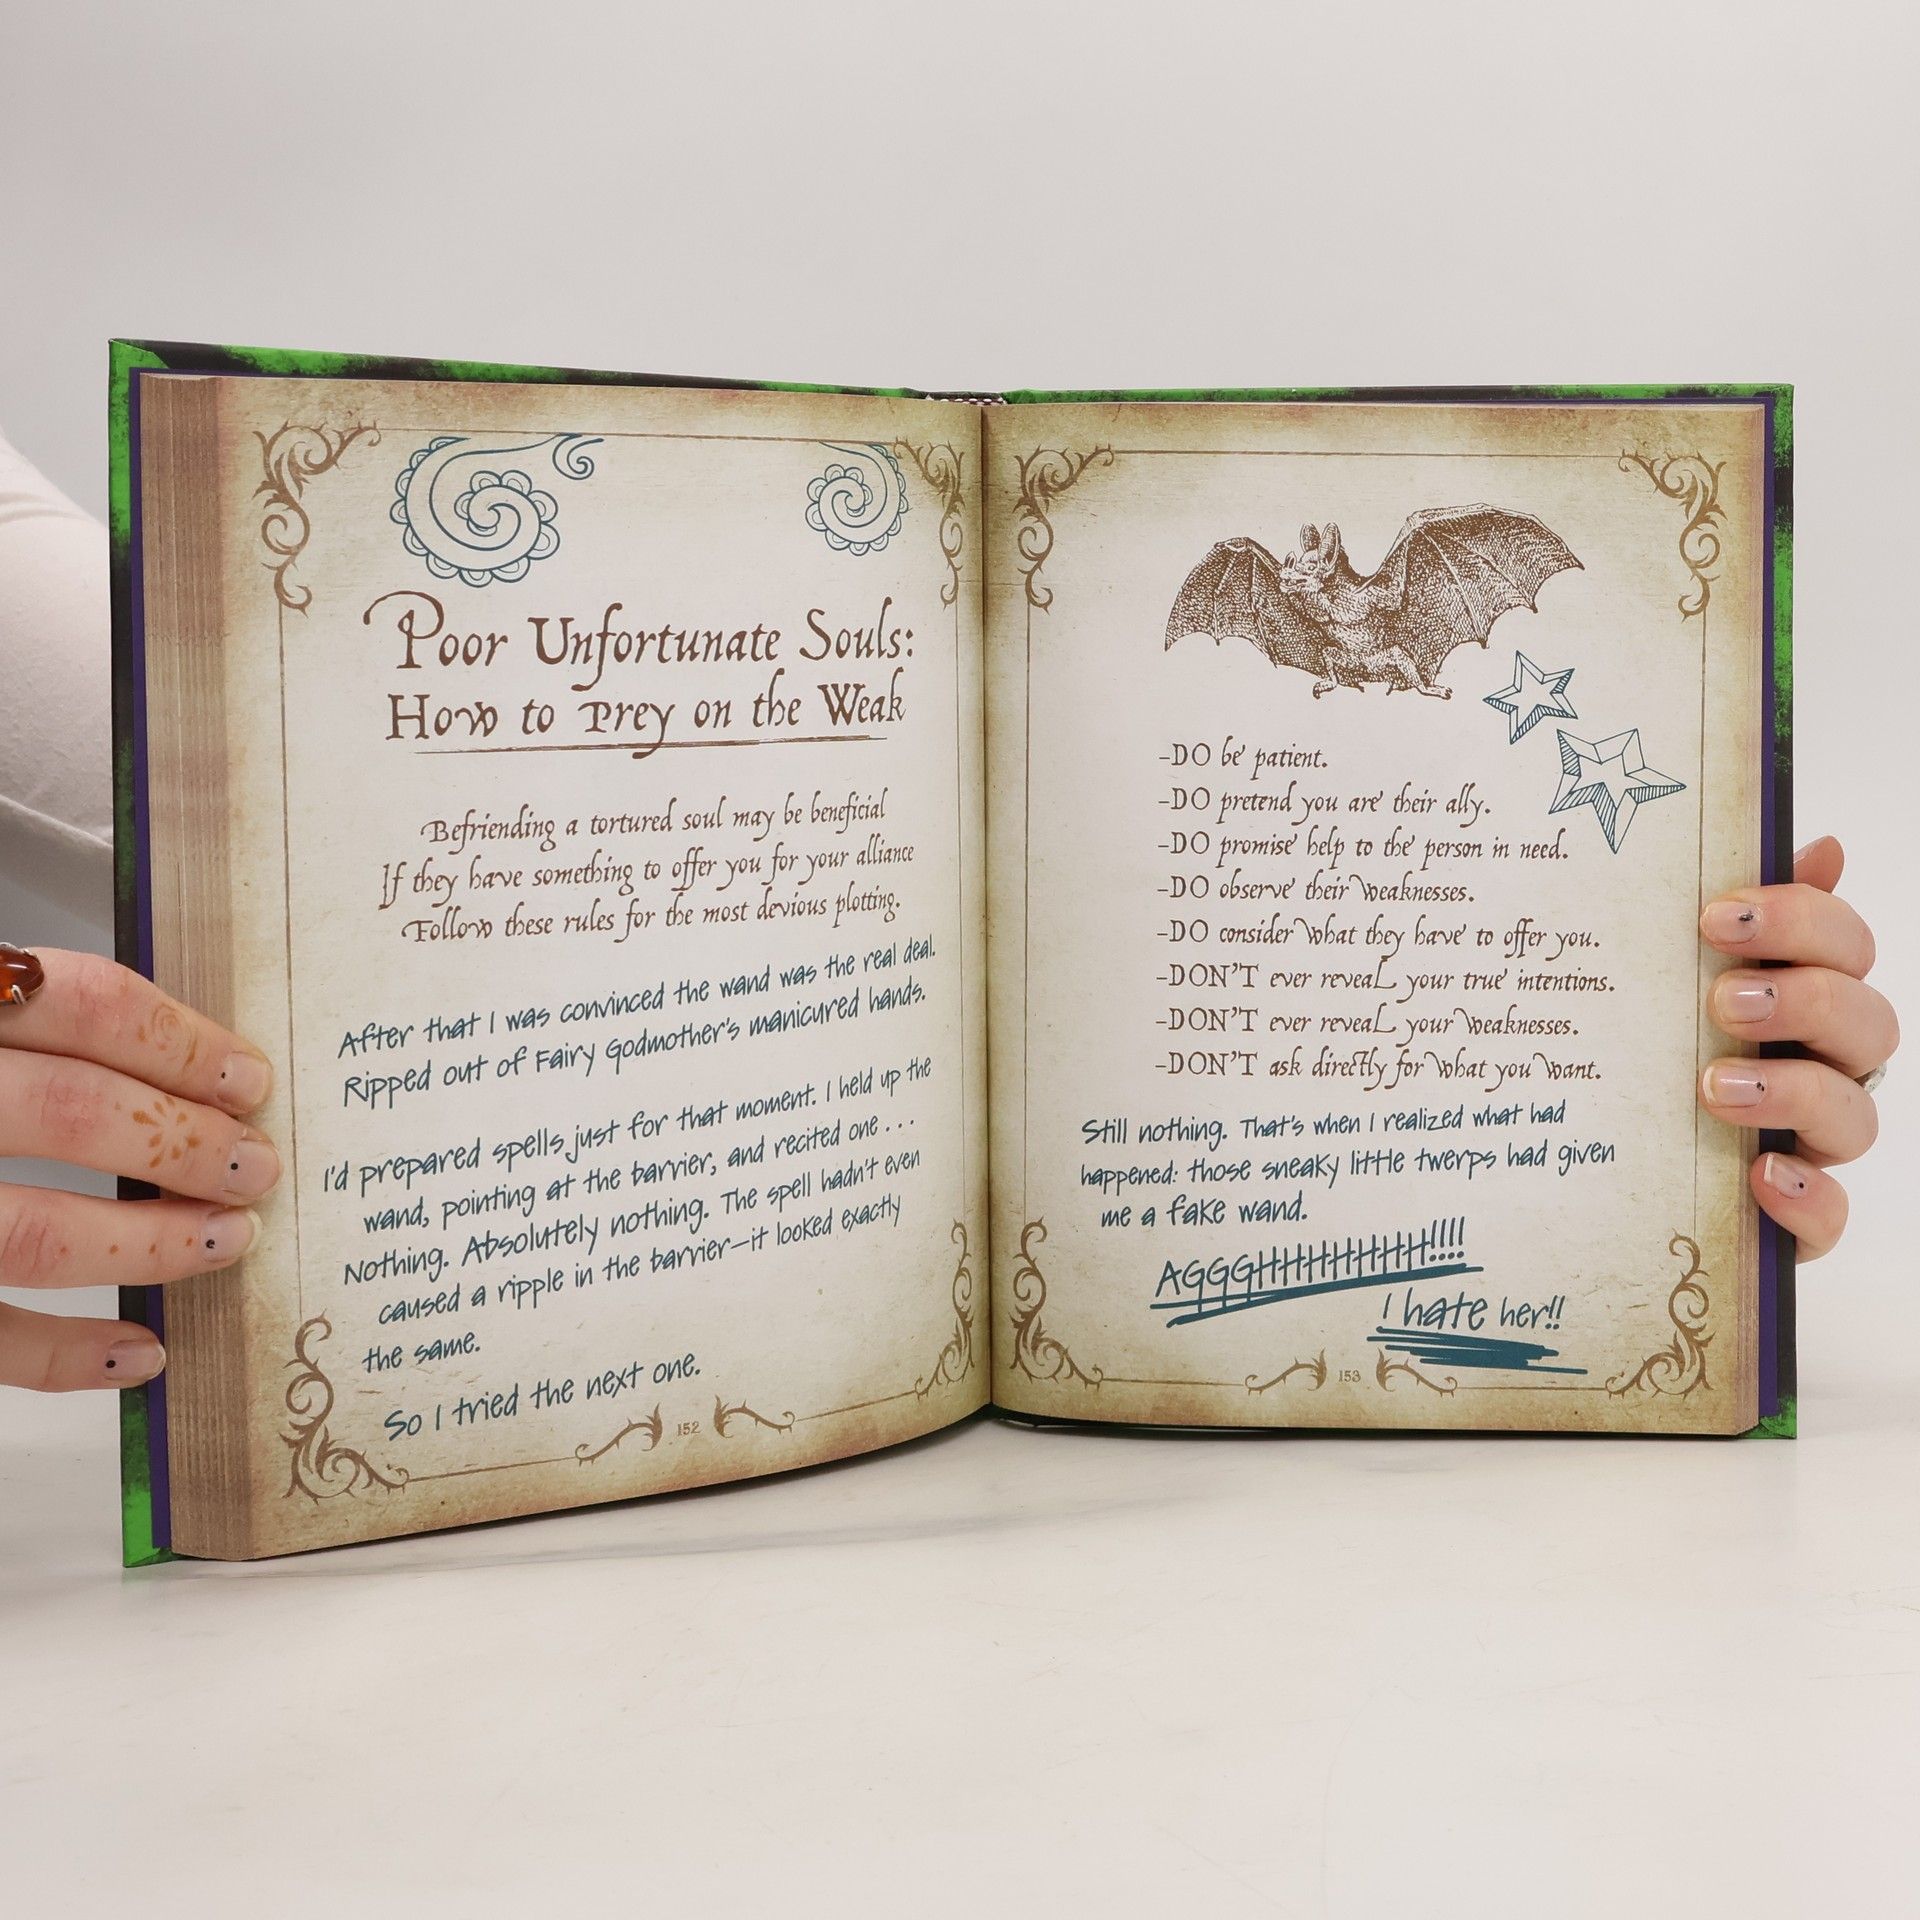 Poor Unfortunate Souls:
How to Prey on the Weak
Befriending a tortured soul may be beneficial
If they have something to offer you for your alliance
Follow these rules for the most devious plotting.
After that I was convinced the wand was the real deal.
Ripped out of Fairy Godmother's manicured hands.
I'd prepared spells just for that moment. I held up the
wand, pointing at the barrier, and recited one . . .
Nothing. Absolutely nothing. The spell hadn't even
caused a ripple in the barrier—it looked exactly
the same.
So I tried the next one.
152
-DO be patient.
-DO pretend you are their ally.
-DO promise help to the person in need.
-DO observe their weaknesses.
-DO consider what they have to offer you.
-DON'T ever reveal your true intentions.
-DON'T ever reveal your weaknesses.
-DON'T ask directly for what you want.
Still nothing. That's when I realized what had
happened: those sneaky little twerps had given
me a fake wand.
AGGGHHHHHHHHH!!!!
I hate her!!
153